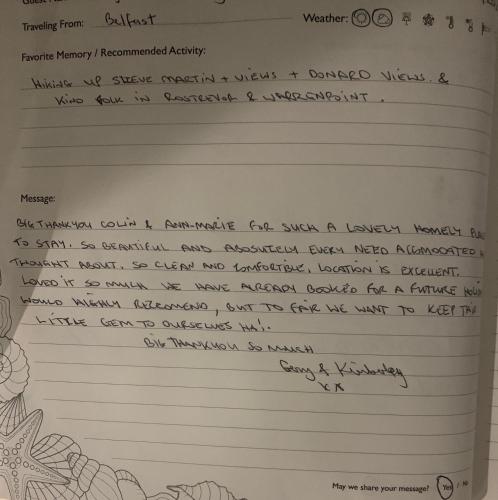 Traveling From: Belfast
Weather:
Favorite Memory / Recommended Activity:
HIKING UP SLIEVE MARTIN + VIEWS + DONARD VIEWS. &
KIND FOLK IN ROSTREVOR & WARRENPOINT.
Message:
BIG THANKYOU COLIN & ANN-MARIE FOR SUCH A LOVELY HOMELY
TO STAY. SO BEAUTIFUL AND ABSOLUTELY EVERY NEED ACCOMODATED
THOUGHT ABOUT. SO CLEAN AND COMFORTIBLE. LOCATION IS EXCELLENT.
LOVED IT SO MUCH WE HAVE ALREADY BOOKED FOR A FUTURE
WOULD HIGHLY RECCOMEND, BUT TO FAIR WE WANT TO KEEP
LITTLE GEM TO OURSELVES HA!.
BIG THANKYOU SO MUCH
Gerry & Kimberley
xx
May we share your message? Yes / No